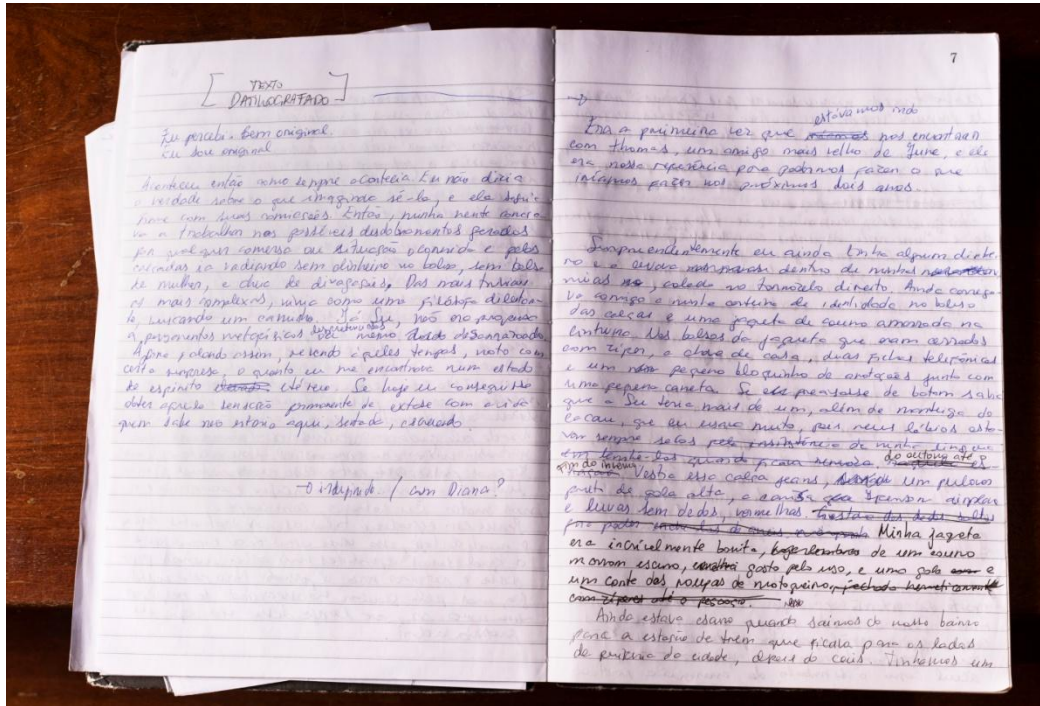 [ TEXTO
DATILOGRAFADO ]
Eu percebi. Bem original.
Eu sou original
Aconteceu então como sempre acontecia. Eu não dizia
a verdade sobre o que imagino sê-la, e ela
com suas Então, minha mente
va a trabalhar nos possíveis desdobramentos gerados
por qualquer conversa ou situação ocorrida e pelos
sem dinheiro no bolso, sem bolsa
de mulher, e cheia de divagações. Das mais triviais
às mais complexas, vivia como uma filósofa
buscando um caminho. Já Su, não era propensa
a pensamentos metafóricos
Agora, olhando assim, revendo aqueles tempos, noto com
certa surpresa, o quanto eu me encontrava num estado
de espírito etéreo. Se hoje eu conseguisse
obter aquela sensação de extase com a vida
quem sabe não estaria aqui, sentado, escrevendo.
→ O / com Diana?
7
estávamos indo
Era a primeira vez que nos encontrar
com Thomas, um amigo mais velho de June, e ele
era nossa referência para podermos fazer o que
iríamos fazer nos próximos dois anos.
Surpreendentemente eu ainda tinha algum dinhei-
ro e o levava dentro de minhas
meias, colado no tornozelo direito. Ainda carrega-
va comigo a minha carteira de identidade no bolso
das calças e uma jaqueta de couro amarrada na
cintura. Nos bolsos da jaqueta que eram cerrados
com zíper, a chave de casa, duas fichas telefônicas
e um pequeno bloquinho de anotações junto com
uma pequena caneta. Se ele precisasse de batom sabia
que a Su teria mais de um, além de manteiga de
cacau, que eu usava muito, pois meus lábios esta-
vam sempre secos pela insistência de minha língua
em quando ficava nervosa. do outono até o
fim do inverno Vestia essa calça jeans, um pulover
preto de gola alta,
e luvas sem dedos, vermelhas
Minha jaqueta
era incrivelmente bonita, de um couro
marrom escuro, gasto pelo uso, e uma gola e
um corte das roupas de motoqueiro, fechada hermeticamente
com zíperes até o pescoço.
Ainda estava escuro quando saímos do nosso bairro
para a estação de trem que ficava para os lados
da periferia da cidade, depois do cais. Tínhamos um